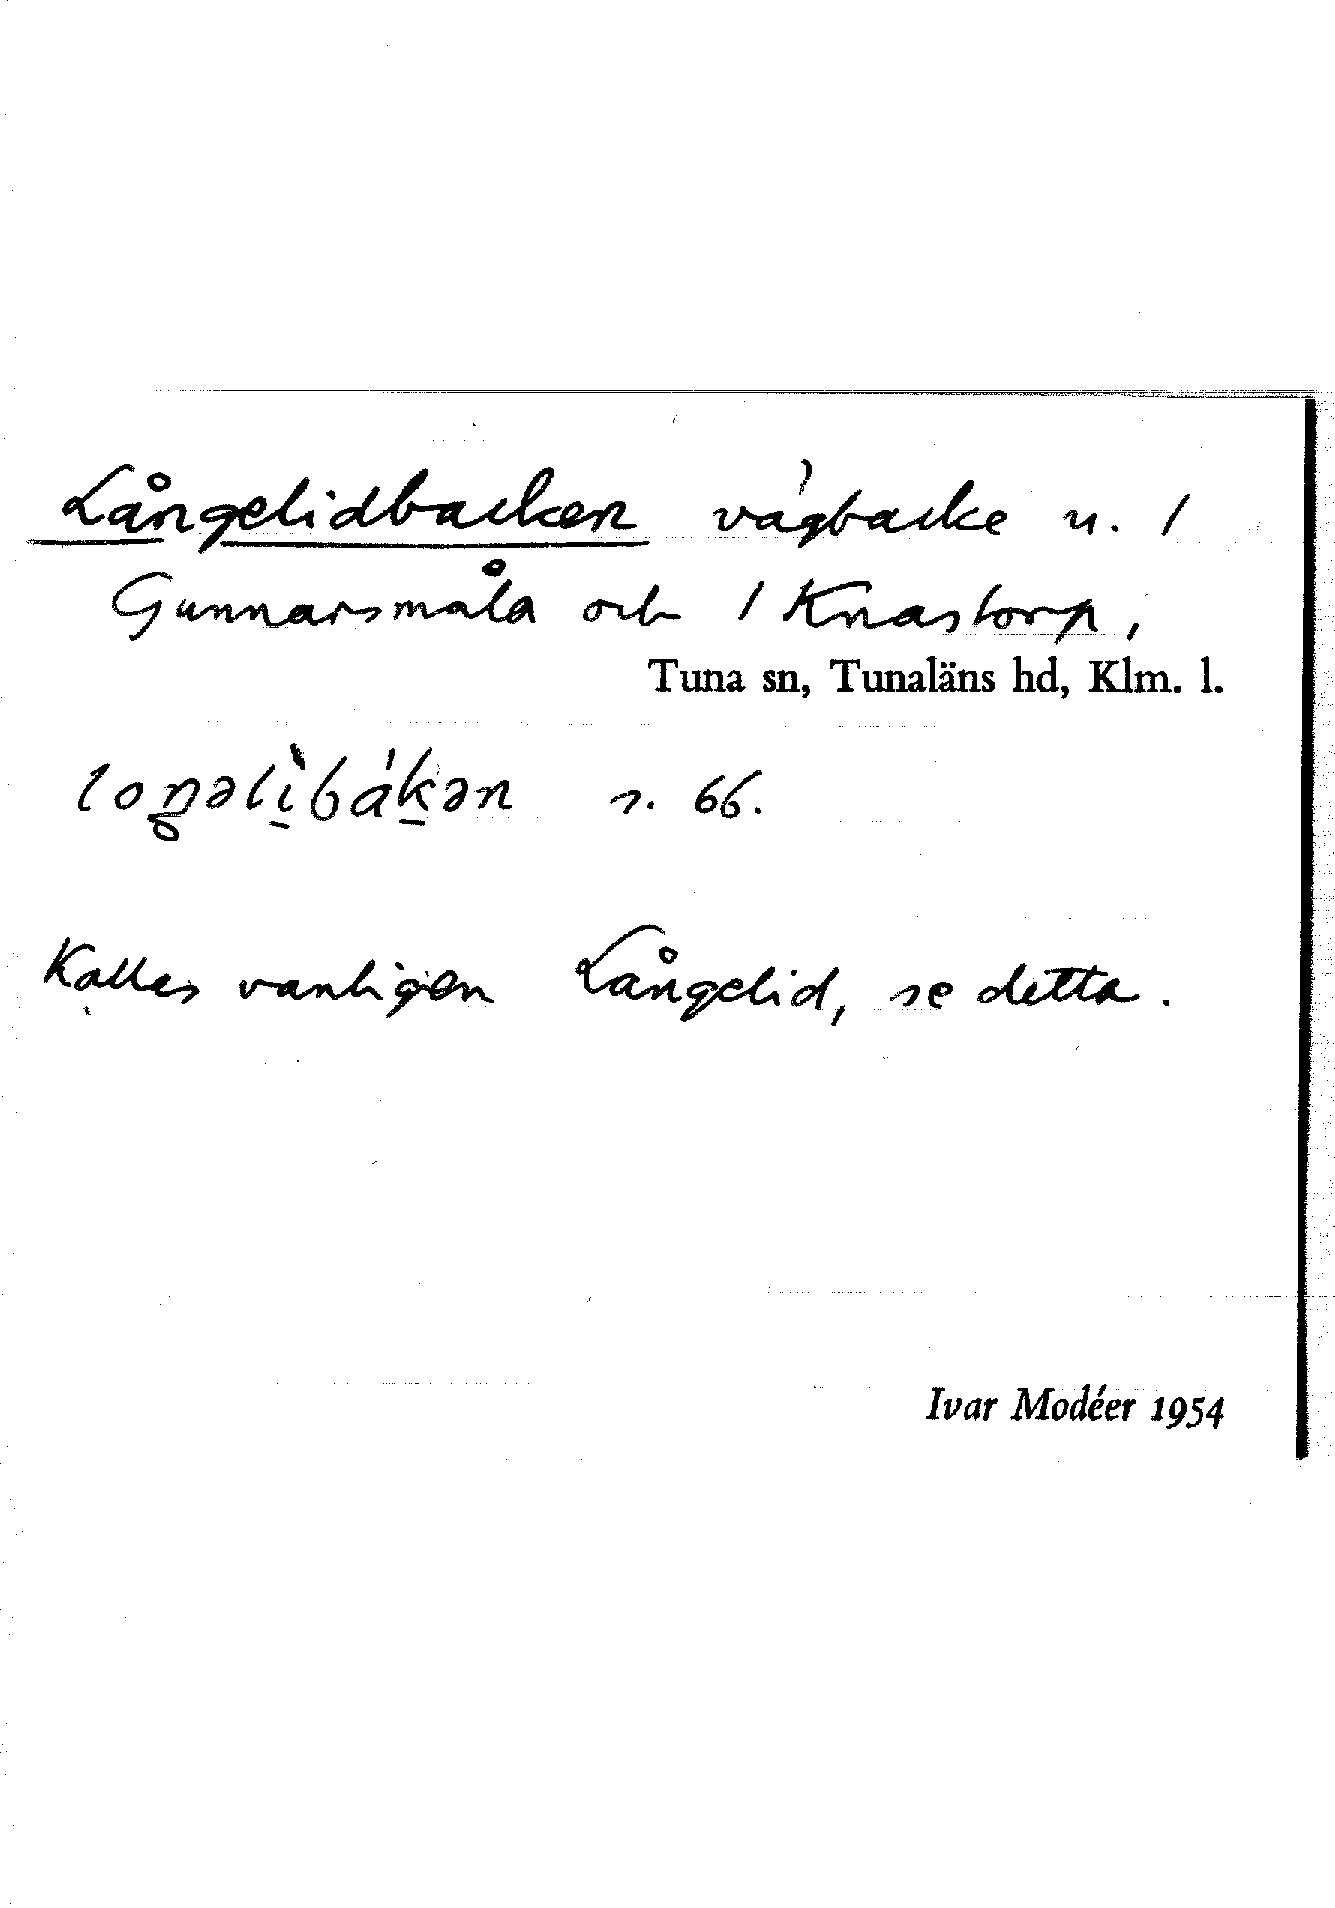 Långelidbacken vägbacke u. /
Gunnarsmåla och / Knastorp,
Tuna sn, Tunaläns hd, Klm. l.
loŋəlìbákən s. 66.
Kallas vanligen Långelid, se detta.
Ivar Modéer 1954